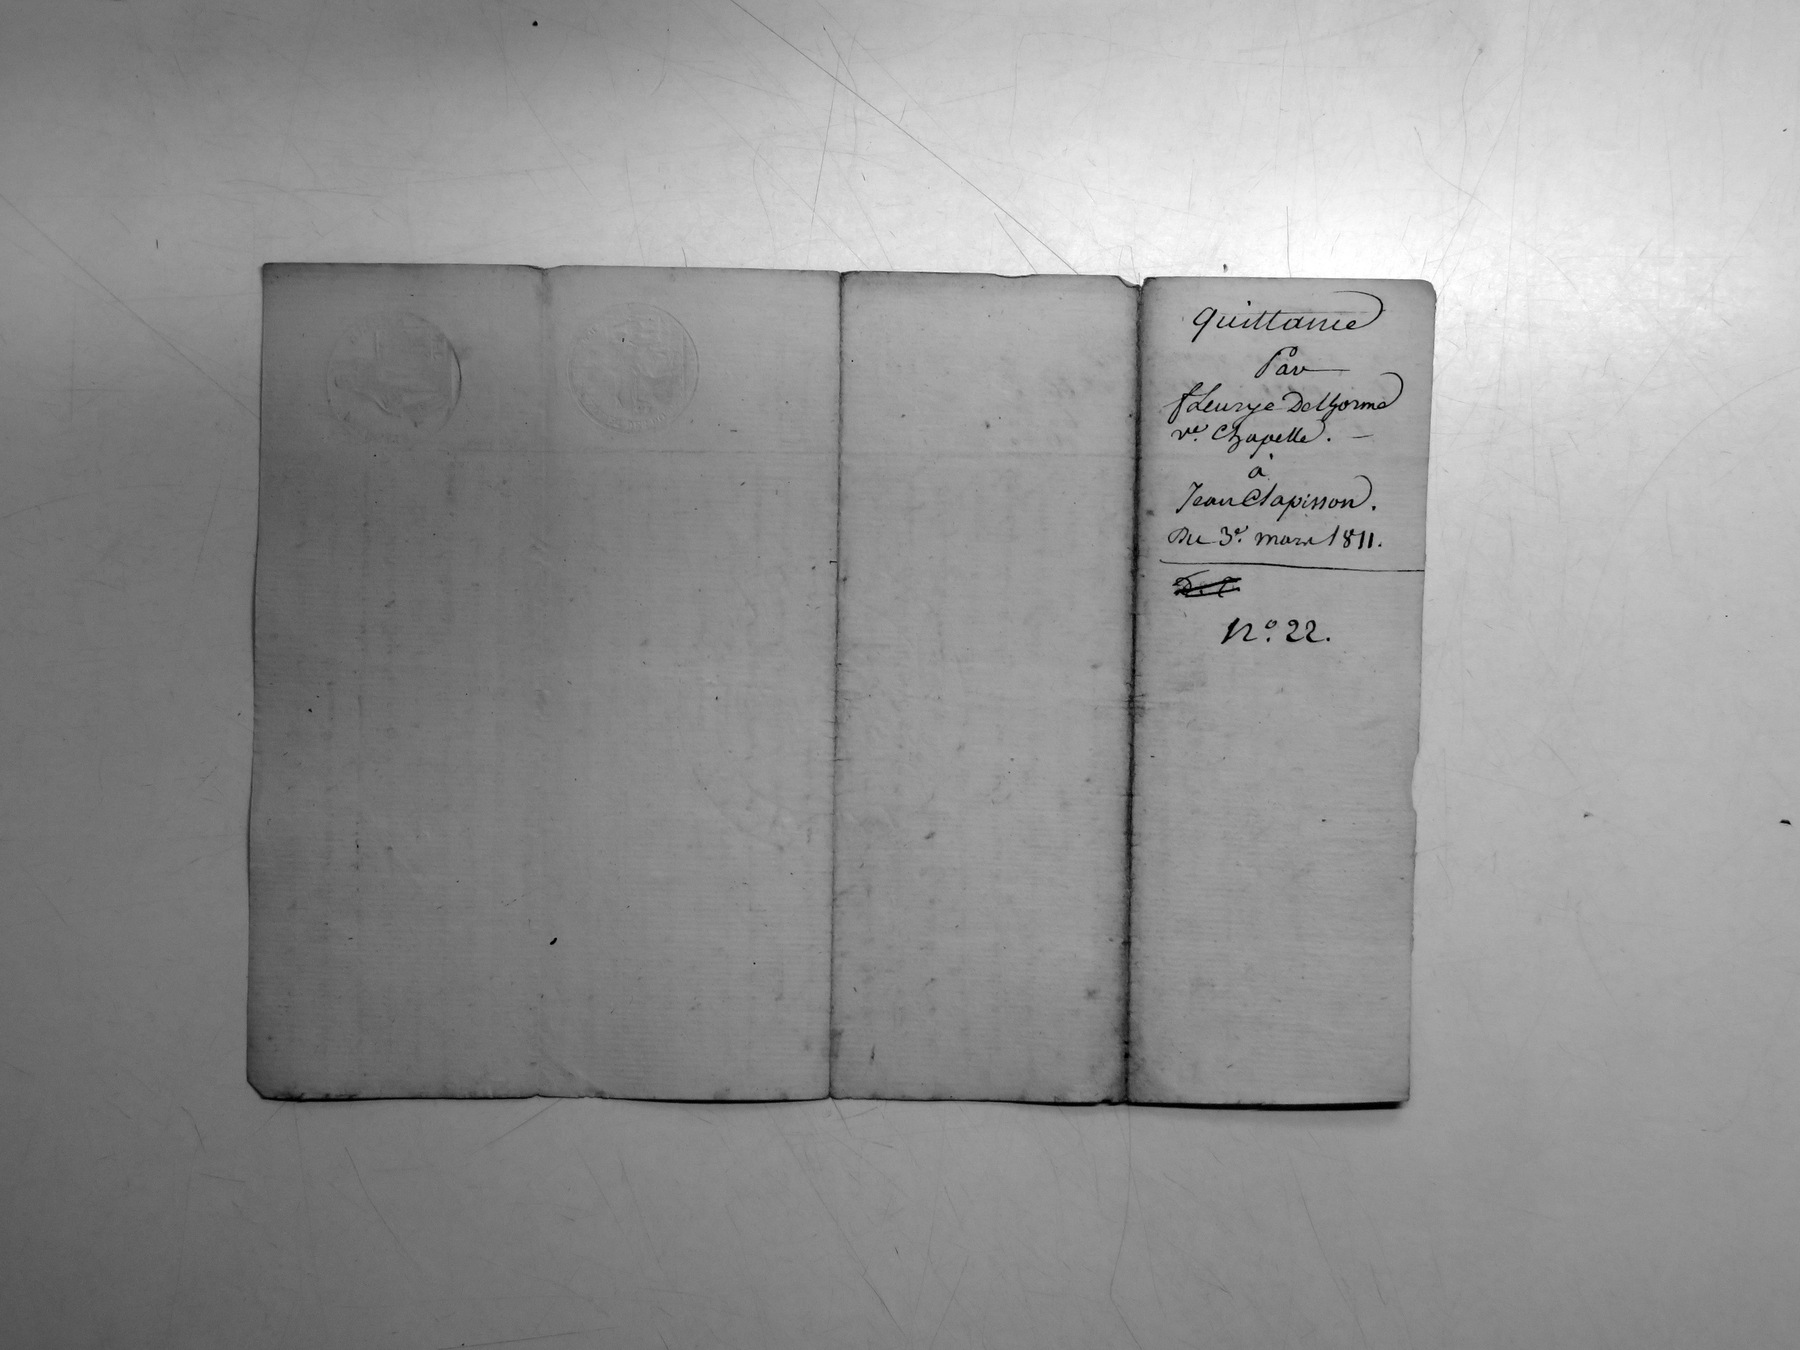 quittance
Par
fleurye Delhorme
ve. Chapelle. —
à
Jean Clapisson.
Du 3e. mars 1811.
No. 22.